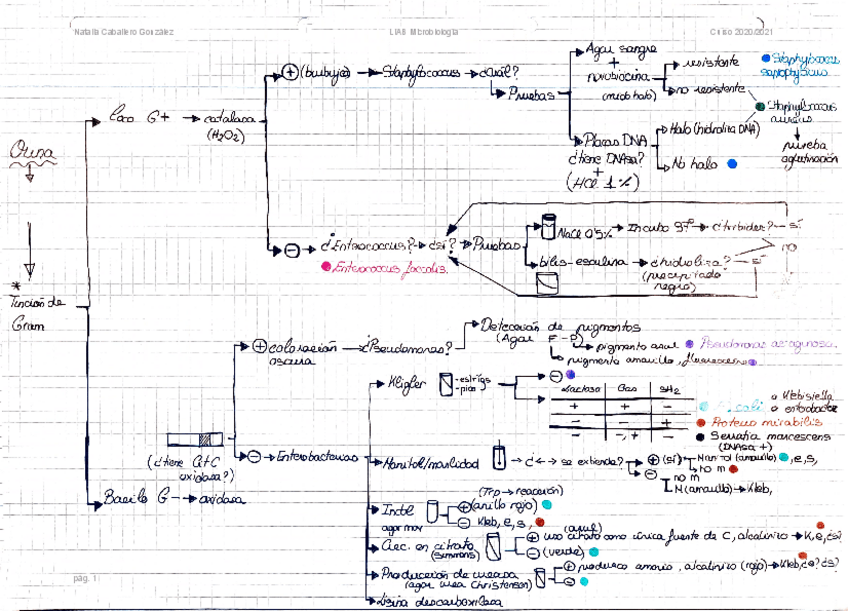 Natalia Caballero González
LIAB Microbiología
Curso 2020/2021
Orina
* Tinción de
Gram
Coco G+ → catalasa
(H₂O₂)
+ (burbuja) → Staphylococcus → ¿cuál?
Pruebas
Agar sangre
+
novobiocina
(mido halo)
resistente
Staphylococcus
saprophyticus
no resistente
Staphylococcus
aureus
prueba
aglutinación
Placas DNA
¿tiene DNAsa?
+
(HCl 1%)
Halo (hidroliza DNA)
No halo
− ¿Enterococcus? → ¿sí? → Pruebas
Enterococcus faecalis.
NaCl 6'5% → Incubo 37º → ¿turbidez? sí
no
bilis-esculina → ¿hidroliza? sí
(precipitado
negro)
Bacilo G- → oxidasa
(¿tiene cit C
oxidasa?)
+ coloración
oscura
¿Pseudomonas?
Detección de pigmentos
(Agar F-P)
pigmento azul Pseudomonas aeruginosa.
pigmento amarillo, fluoresceína
− Enterobacterias
Kligler
-estrías
-pica
+
−
Lactosa Gas SH2
+ + −
− + +
− −,+ −
E. coli
Klebsiella
enterobacter
Proteus mirabilis
Serratia marcescens
(DNAsa +)
Manitol/movilidad → ¿←→ se extiende?
+ (sí) Manitol (amarillo) , e, s,
no m
− no m
M (amarillo) → Kleb,
Indol
agar mov
(Trp → reacción)
+ (anillo rojo)
− Kleb, e, s,
Crec. en citrato
(Simmons)
(azul)
+ uso citrato como única fuente de C, alcalinizo → K, e, ¿s?
− (verde)
Producción de ureasa
(agar urea Christensen)
+ produzco amonio, alcalinizo (rojo) → Kleb, ¿e? ¿s?
−
Lisina descarboxilasa
pág. 1